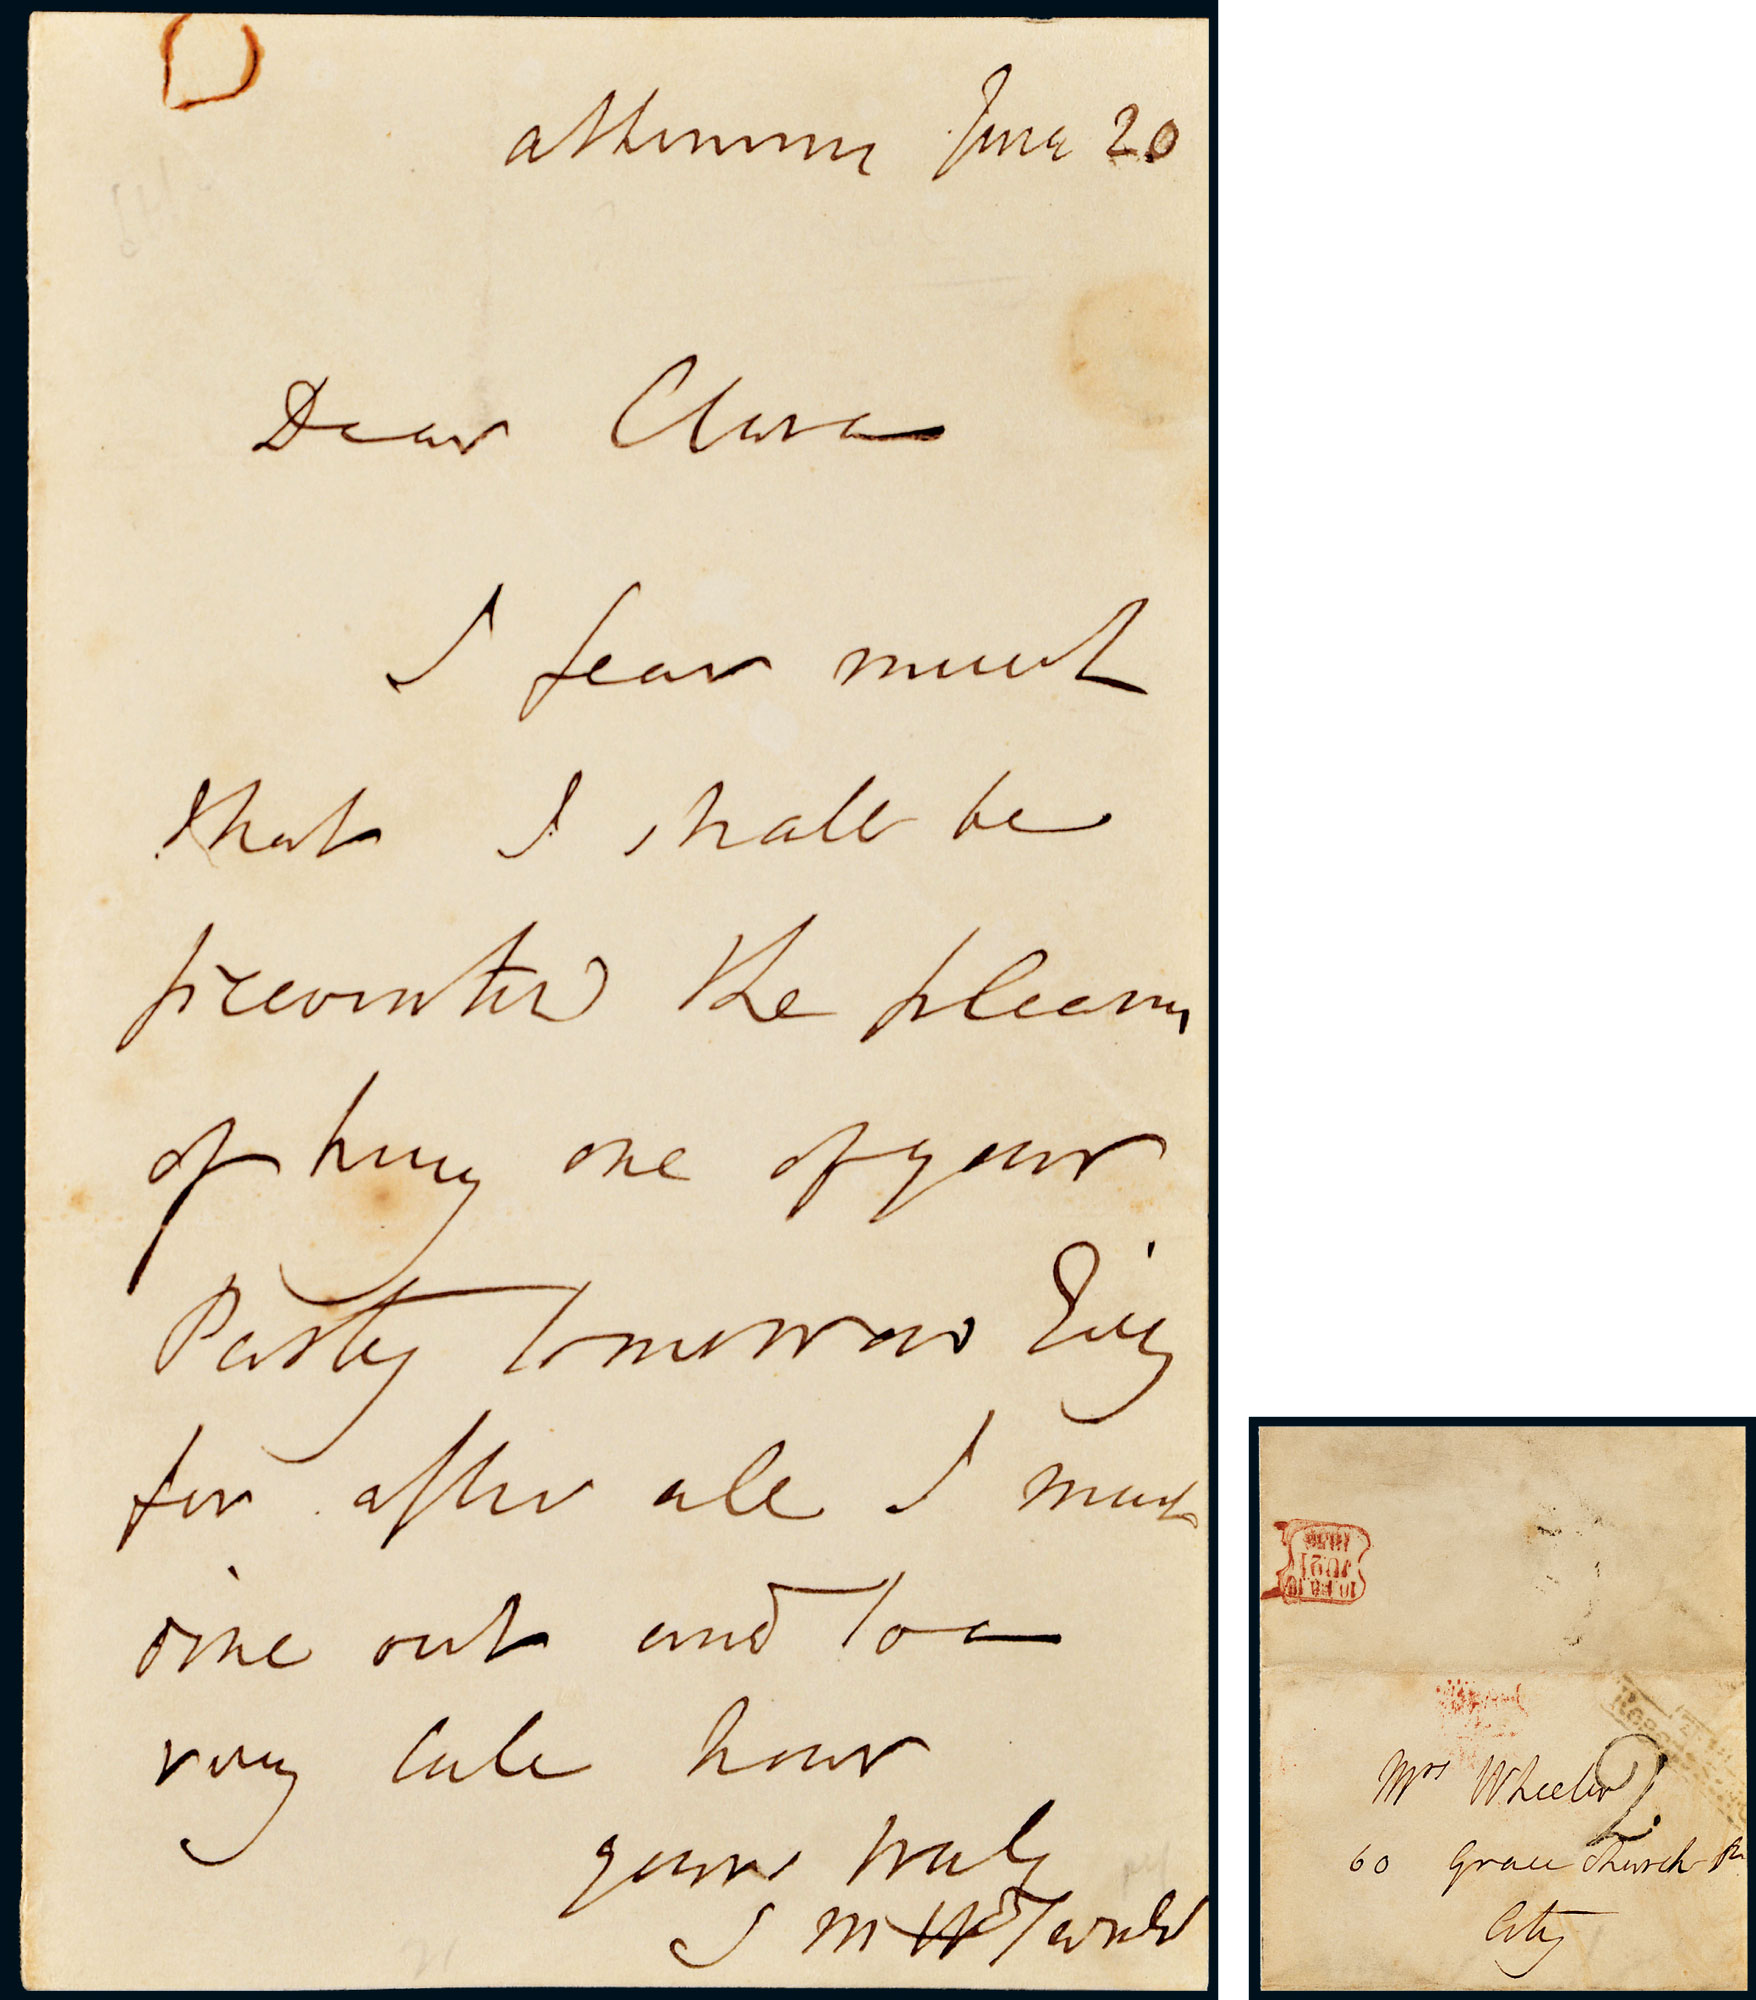 Athenaeum June 20
Dear Clara
I fear much
that I shall be
prevented the pleasure
of being one of your
Party tomorrow Evg
for after all I must
dine out and to a
very late hour
yours truly
J M W Turner
Mrs Wheeler
60 Grace Church
City